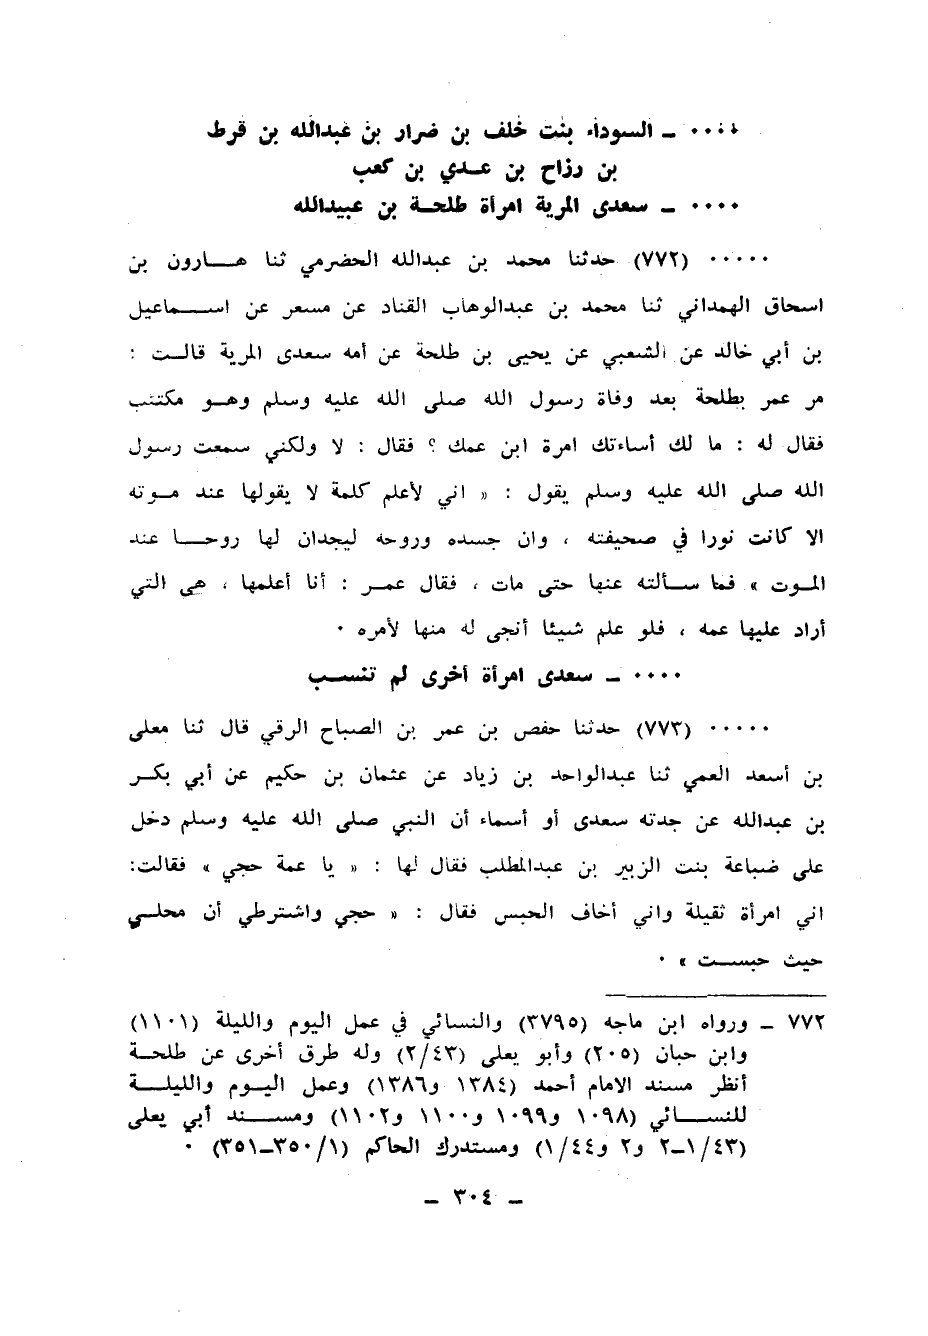 ٠٠٠٠ ـ السوداء بنت خلف بن ضرار بن عبدالله بن قرط
بن رزاح بن عــدي بن كعب
٠٠٠٠ ـ سعدى المرية امرأة طلحــة بن عبيدالله
٠٠٠٠٠ (٧٧٢) حدثنا محمد بن عبدالله الحضرمي ثنا هــارون بن
اسحاق الهمداني ثنا محمد بن عبدالوهاب القناد عن مسعر عن اســماعيل
بن أبي خالد عن الشعبي عن يحيى بن طلحة عن أمه سعدى المرية قالــت :
مر عمر بطلحة بعد وفاة رسول الله صلى الله عليه وسلم وهــو مكتئب
فقال له : ما لك أساءتك امرة ابن عمك ؟ فقال : لا ولكني سمعت رسول
الله صلى الله عليه وسلم يقول : « اني لأعلم كلمة لا يقولها عند مــوته
الا كانت نورا في صحيفته ، وان جسده وروحه ليجدان لها روحــا عند
المــوت » فما ســألته عنها حتى مات ، فقال عمــر : أنا أعلمها ، هي التي
أراد عليها عمه ، فلو علم شيئا أنجى له منها لأمره ٠
٠٠٠٠ ـ سعدى امرأة أخرى لم تنســب
٠٠٠٠٠ (٧٧٣) حدثنا حفص بن عمر بن الصباح الرقي قال ثنا معلى
بن أسعد العمي ثنا عبدالواحد بن زياد عن عثمان بن حكيم عن أبي بكــر
بن عبدالله عن جدته سعدى أو أسماء أن النبي صلى الله عليه وسلم دخل
على ضباعة بنت الزبير بن عبدالمطلب فقال لها : « يا عمة حجي » فقالت:
اني امرأة ثقيلة واني أخاف الحبس فقال : « حجي واشترطي أن محلــي
حيث حبســت » ٠
٧٧٢ ـ ورواه ابن ماجه (٣٧٩٥) والنسائي في عمل اليوم والليلة (١١٠١)
وابن حبان (٢٠٥) وأبو يعلى (٢/٤٣) وله طرق أخرى عن طلحــة
أنظر مسند الامام أحمد (١٣٨٤ و١٣٨٦) وعمل اليــوم والليلــة
للنســائي (١٠٩٨ و١٠٩٩ و١١٠٠ و١١٠٢) ومســند أبي يعلى
(١/٤٣ـ٢ و٢ و١/٤٤) ومستدرك الحاكم (١/٣٥٠ـ٣٥١) ٠
ـ ٣٠٤ ـ